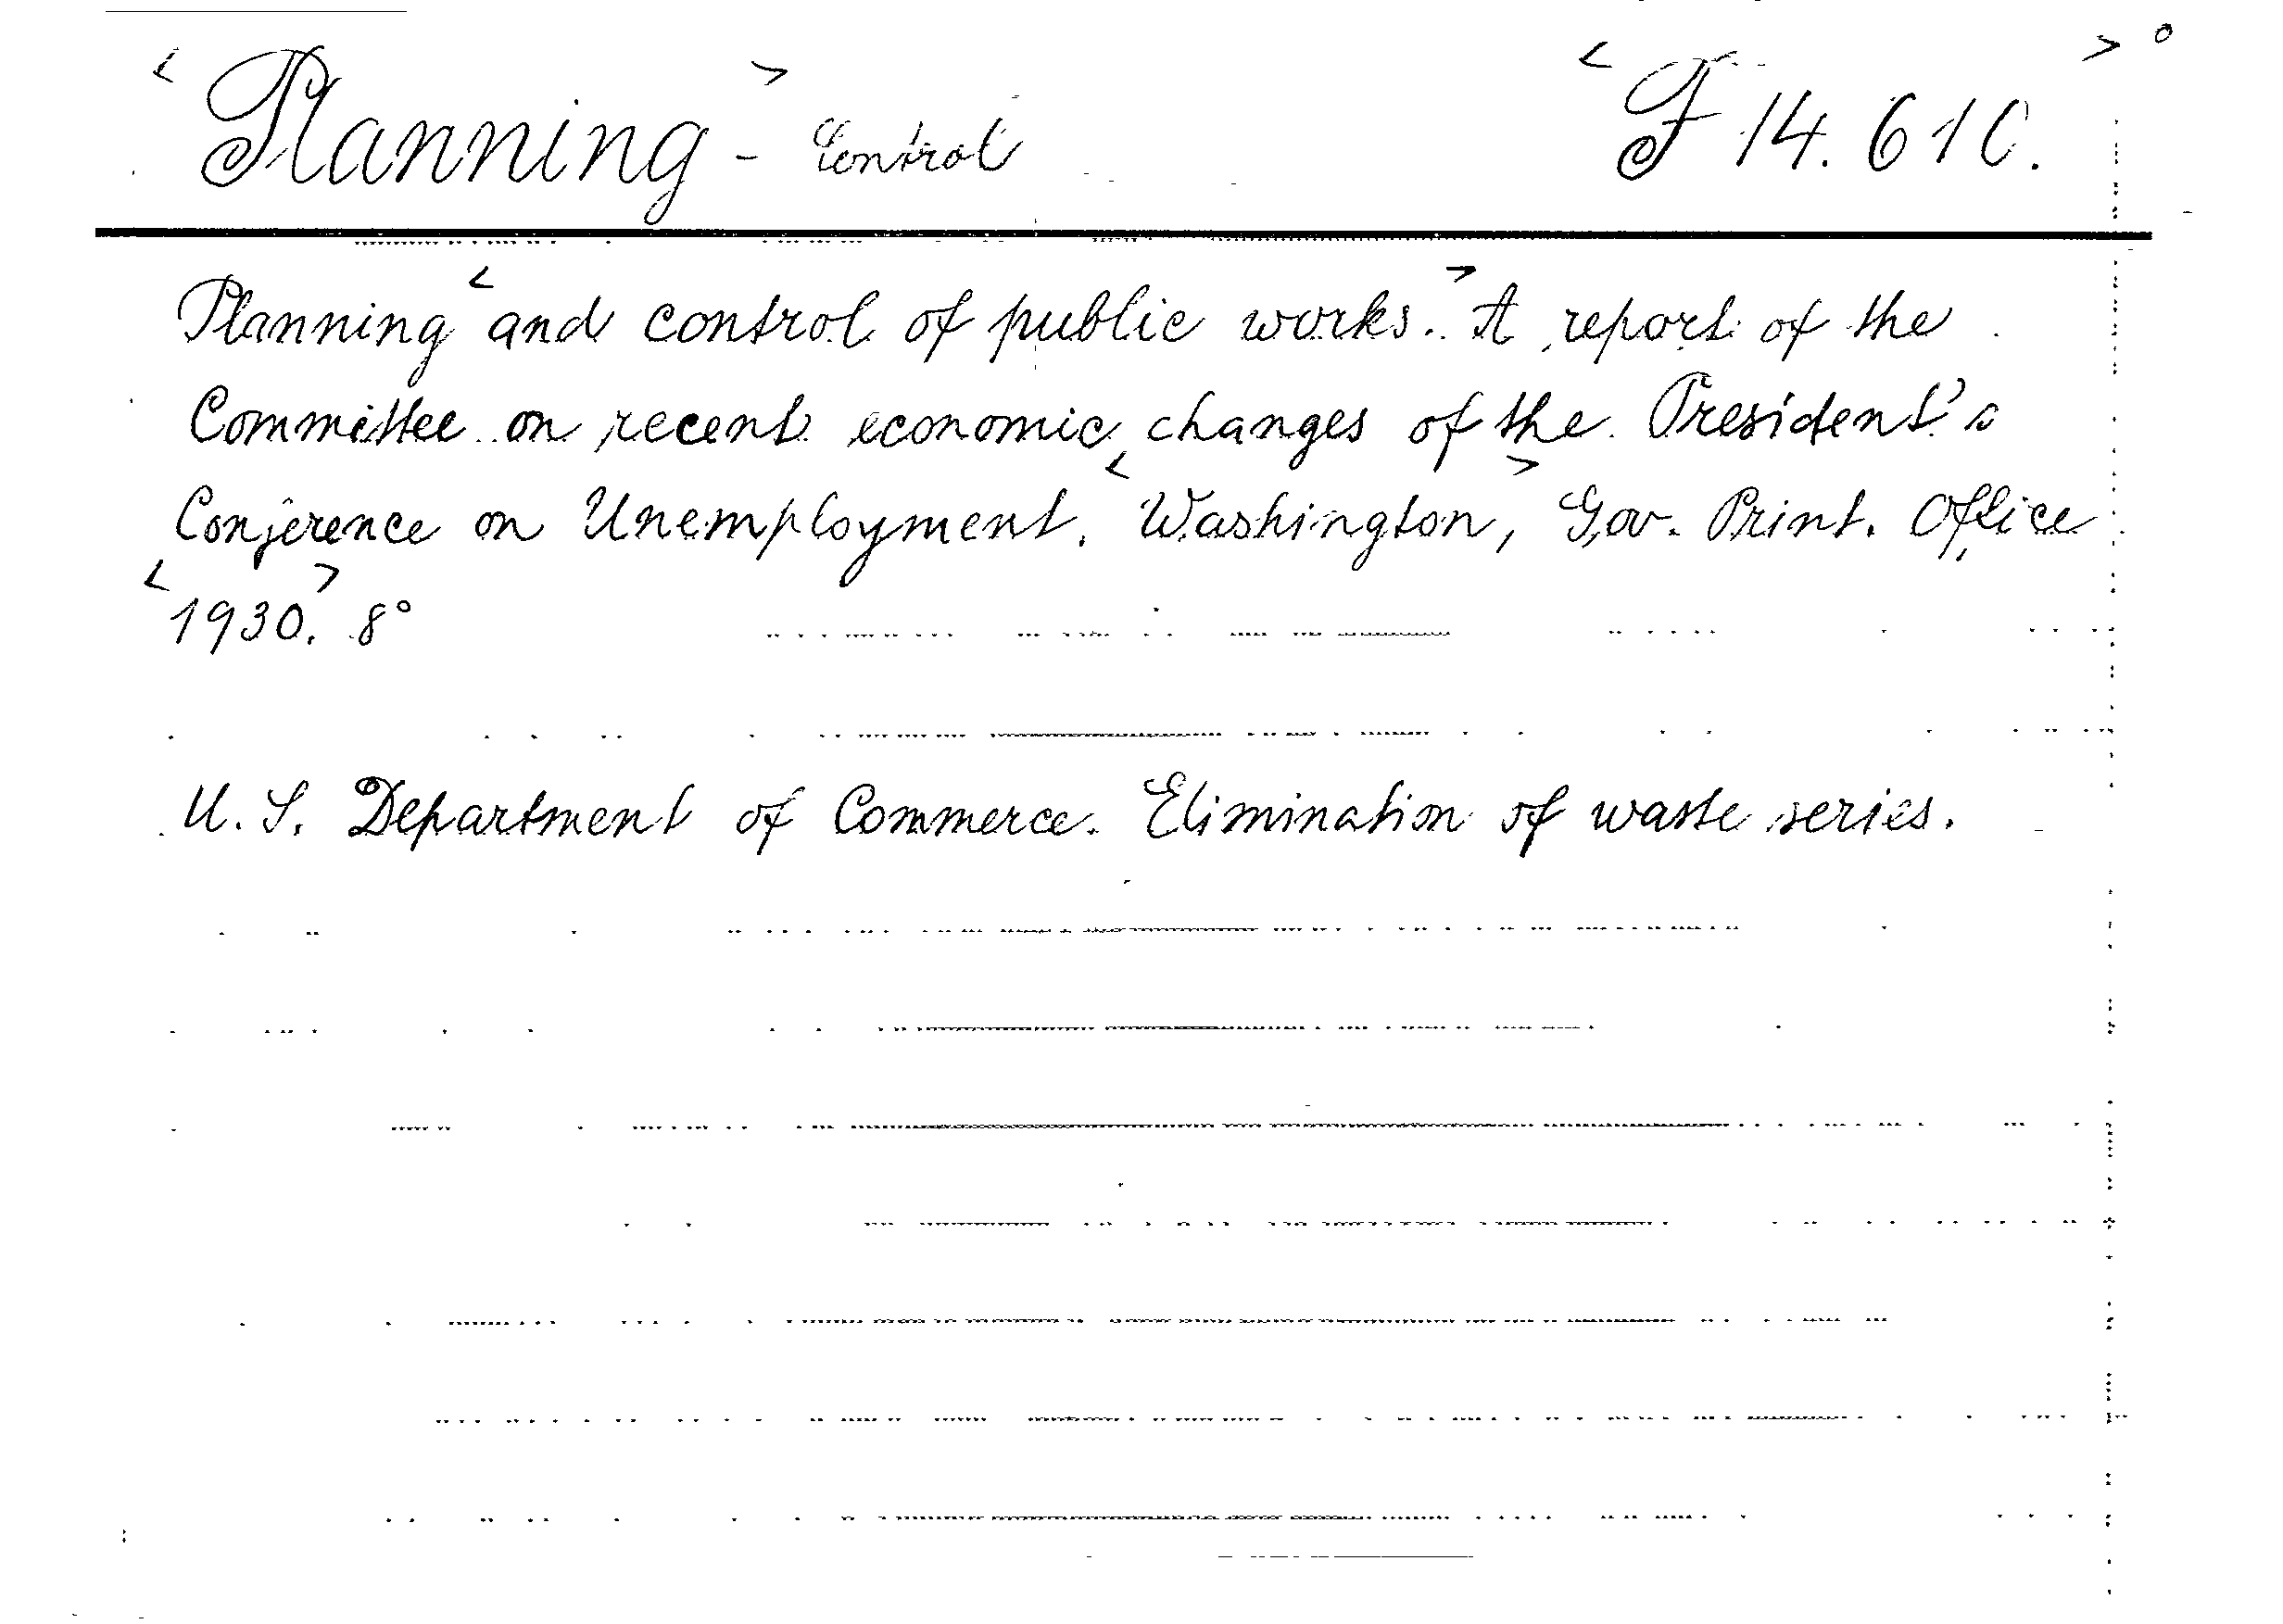 < Planning > - Control < F 14.610. > °
Planning < and control of public works. > A report of the
Committee on recent economic changes of the President's
Conference on Unemployment. < Washington, > Gov. Print. Office
< 1930. > 8°
U. S. Department of Commerce. Elimination of waste series.